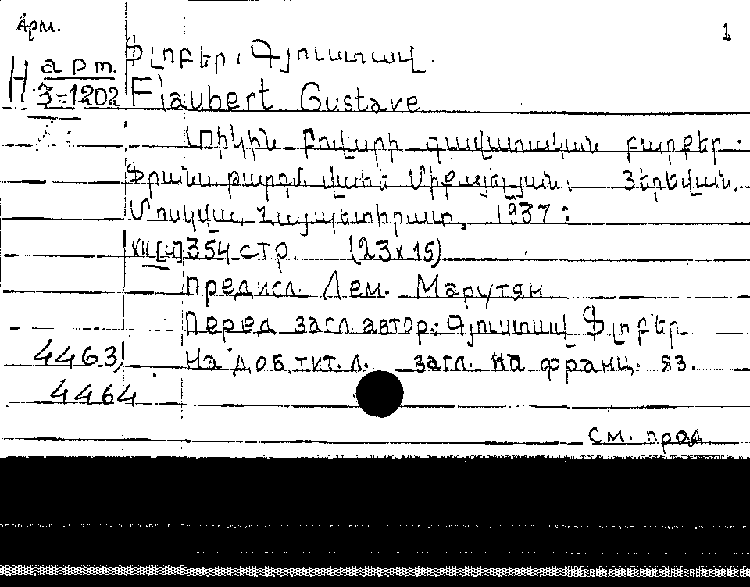 Арм.
1
H арт. 3=1202
Ֆլոբեր, Գյուստավ.
Flaubert Gustave
Տիկին Բովարի գավառական բարքեր.
Ֆրանս. թարգմ. Միքայելյան. Յերեվան,
Մոսկվա, Հայպետհրատ, 1937:
354 стр. (23x15)
предисл. Дем. Марутян
Перед загл. автор: Գյուստավ Ֆլոբեր
На доб. тит. л. загл. на франц. яз.
4463,
4464
см. прод.